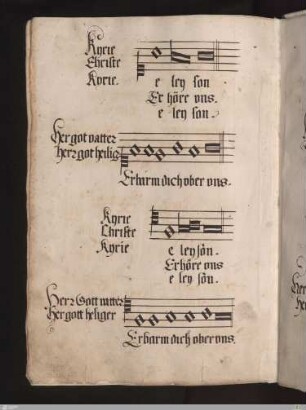 Kyrie
Christe
Kyrie.
e ley son
Er höre vns.
e ley son.
Her got vatter
herr got heilig
Erbarm dich vber vns.
Kyrie
Christe
Kyrie
e ley sön.
Erhöre vns
e ley sön.
Herr Gott vatter
Her gott heliger
Erbarm dich vber vns.